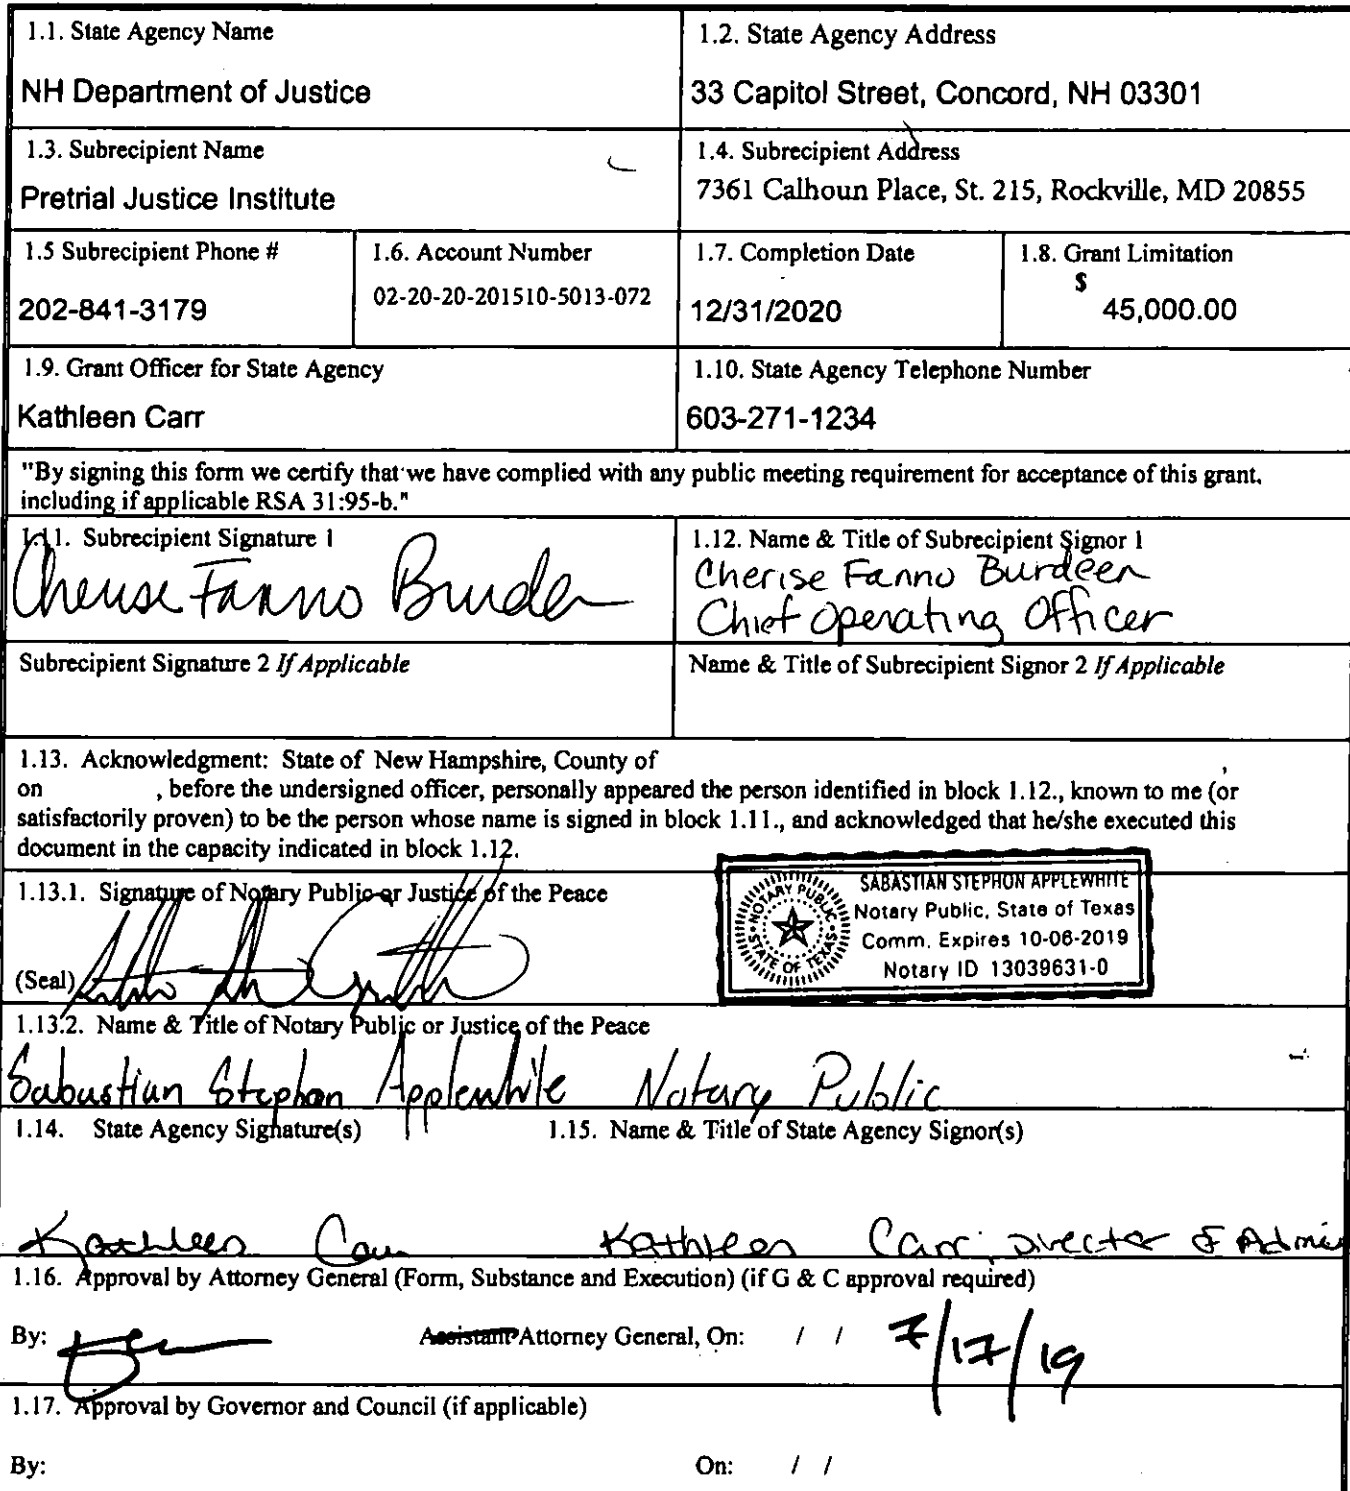 1.1. State Agency Name
NH Department of Justice
1.2. State Agency Address
33 Capitol Street, Concord, NH 03301
1.3. Subrecipient Name
Pretrial Justice Institute
1.4. Subrecipient Address
7361 Calhoun Place, St. 215, Rockville, MD 20855
1.5 Subrecipient Phone #
202-841-3179
1.6. Account Number
02-20-20-201510-5013-072
1.7. Completion Date
12/31/2020
1.8. Grant Limitation
$
45,000.00
1.9. Grant Officer for State Agency
Kathleen Carr
1.10. State Agency Telephone Number
603-271-1234
"By signing this form we certify that we have complied with any public meeting requirement for acceptance of this grant,
including if applicable RSA 31:95-b."
1.11. Subrecipient Signature 1
Cherise Fanno Burdeen
1.12. Name & Title of Subrecipient Signor 1
Cherise Fanno Burdeen
Chief Operating Officer
Subrecipient Signature 2 If Applicable
Name & Title of Subrecipient Signor 2 If Applicable
1.13. Acknowledgment: State of New Hampshire, County of ,
on , before the undersigned officer, personally appeared the person identified in block 1.12., known to me (or
satisfactorily proven) to be the person whose name is signed in block 1.11., and acknowledged that he/she executed this
document in the capacity indicated in block 1.12.
1.13.1. Signature of Notary Public or Justice of the Peace
(Seal)
NOTARY PUBLIC
STATE OF TEXAS
SABASTIAN STEPHON APPLEWHITE
Notary Public, State of Texas
Comm. Expires 10-06-2019
Notary ID 13039631-0
1.13.2. Name & Title of Notary Public or Justice of the Peace
Sabastian Stephon Applewhite Notary Public
1.14. State Agency Signature(s)
1.15. Name & Title of State Agency Signor(s)
Kathleen Carr
Kathleen Carr Director of Admin
1.16. Approval by Attorney General (Form, Substance and Execution) (if G & C approval required)
By: Assistant Attorney General, On: / / 7/17/19
1.17. Approval by Governor and Council (if applicable)
By: On: / /